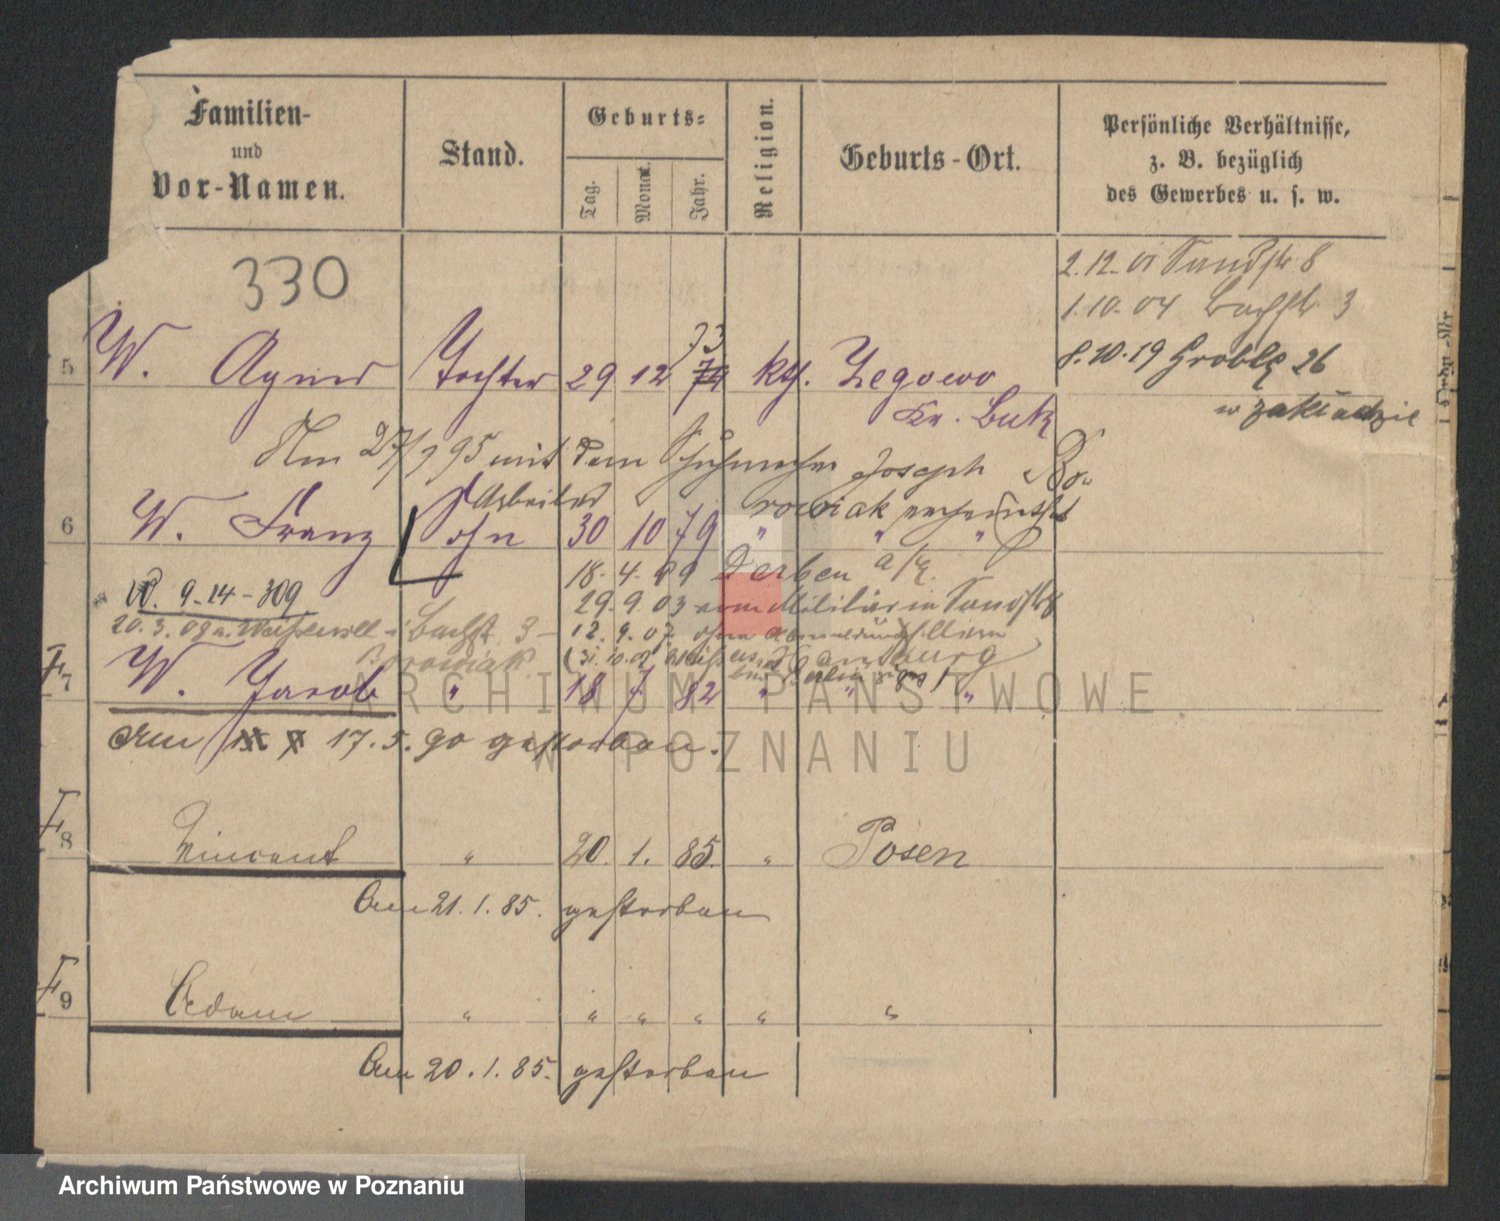 Familien-
und
Vor-Namen.
Stand.
Geburts-
Tag.
Monat.
Jahr.
Religion.
Geburts-Ort.
Persönliche Verhältnisse,
z. B. bezüglich
des Gewerbes u. s. w.
330
2.12.01 Sandstr 8
1.10.04 Bachstr 3
8.10.19 Grobla 26
w zakładzie
73
5 W. Agnes Tochter 29 12 74 kth. Zegowo
Kr. Buk
Am 27/7 95 mit dem Schuhmacher Joseph Bo-
rowiak verheirathet
Arbeiter
6 W. Franz Sohn 30 10 79 " " "
18. 4. 99 Derben a/E.
W. 9-14-309
29. 9. 03 vom Militär in Sandstr 8
20. 3. 09 Bachstr 3
12. 9. 07 ohne Abmeldung
Borowiak
Hamburg
F 7 W. Jacob " 18 7 82 " " "
Am 17. 5. 90 gestorben.
F 8 Vincent " 20. 1. 85. " Posen
Am 21. 1. 85. gestorben
F 9 Adam " " " " " "
Am 20. 1. 85. gestorben
ARCHIWUM PAŃSTWOWE
W POZNANIU
Archiwum Państwowe w Poznaniu